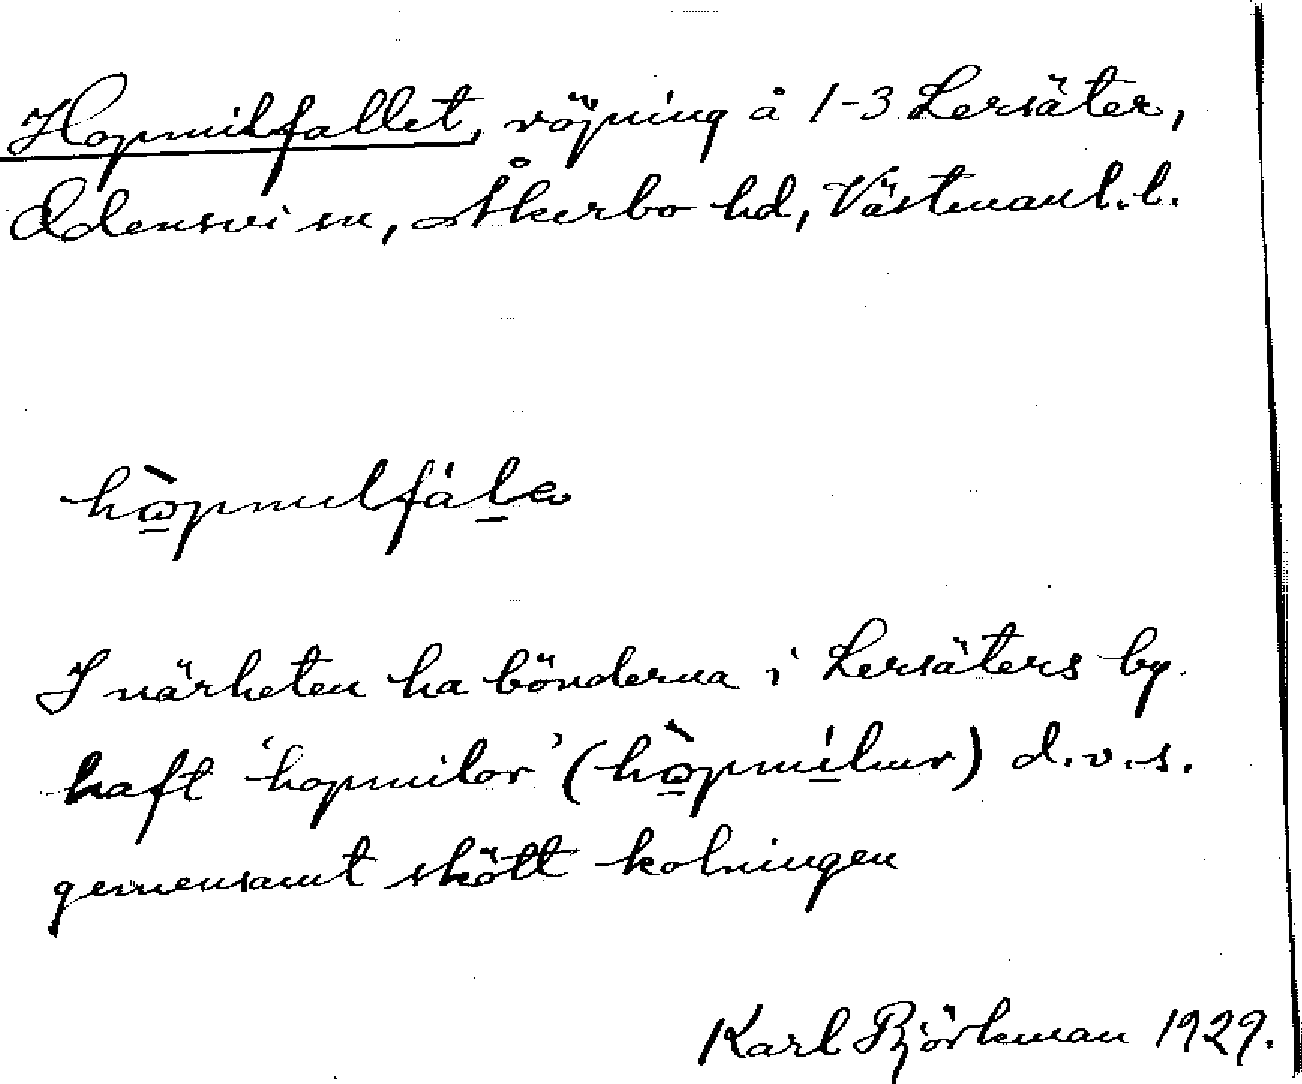 Hopmilfallet, röjning å 1-3 Lersäter,
Odensvi sn, Åkerbo hd, Västmanl. l.
hòpmilfálə
I närheten ha bönderna i Lersäters by
haft 'hopmilor' (hòpmílɯr) d.v.s.
gemensamt skött kolningen
Karl Björkman 1929.